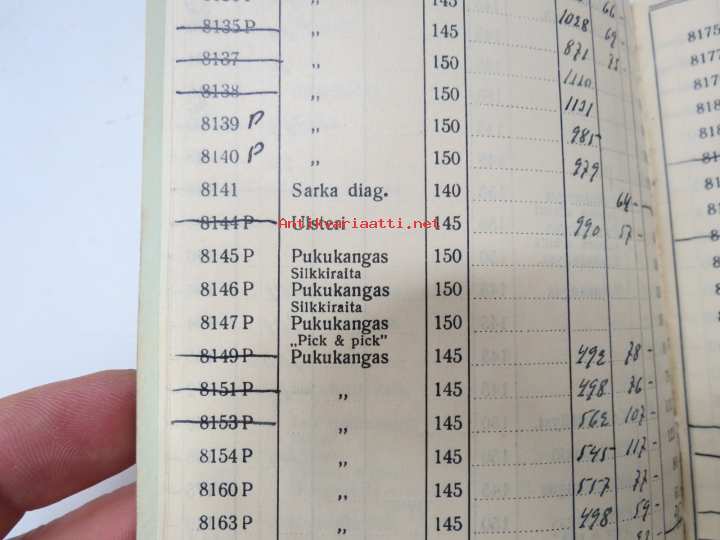 145
8135 P „ 145 1028 66-
8137 „ 150 871 69-
8138 „ 150 1110 75-
8139 P „ 150 1121
8140 P „ 150 985-
979
8141 Sarka diag. 140
64-
8144 P Ulsteri 145 990 57-
Antikvariaatti.net
8145 P Pukukangas 150
Silkkiraita
8146 P Pukukangas 150
Silkkiraita
8147 P Pukukangas 150
„Pick & pick"
8149 P Pukukangas 145 492 78-
8151 P „ 145 498 76-
8153 P „ 145 562 107-
8154 P „ 145 545- 117-
8160 P „ 145 557 77-
8163 P „ 145 498 59-
8175
8177